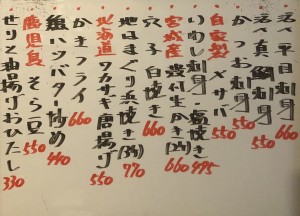 活〆平目 660
活〆真鯛刺身 550
かつお刺身 550
自家製 〆サバ 550
いわし刺身・塩焼き 495
宮城産 殻付生かき(2ケ) 660
穴子白焼き 660
地はまぐり浜焼き(3ケ) 770
北海道 ワカサギ唐揚げ 550
かきフライ 660
魚ハツバター炒め 440
鹿児島 そら豆 550
せりと油揚げおひたし 330